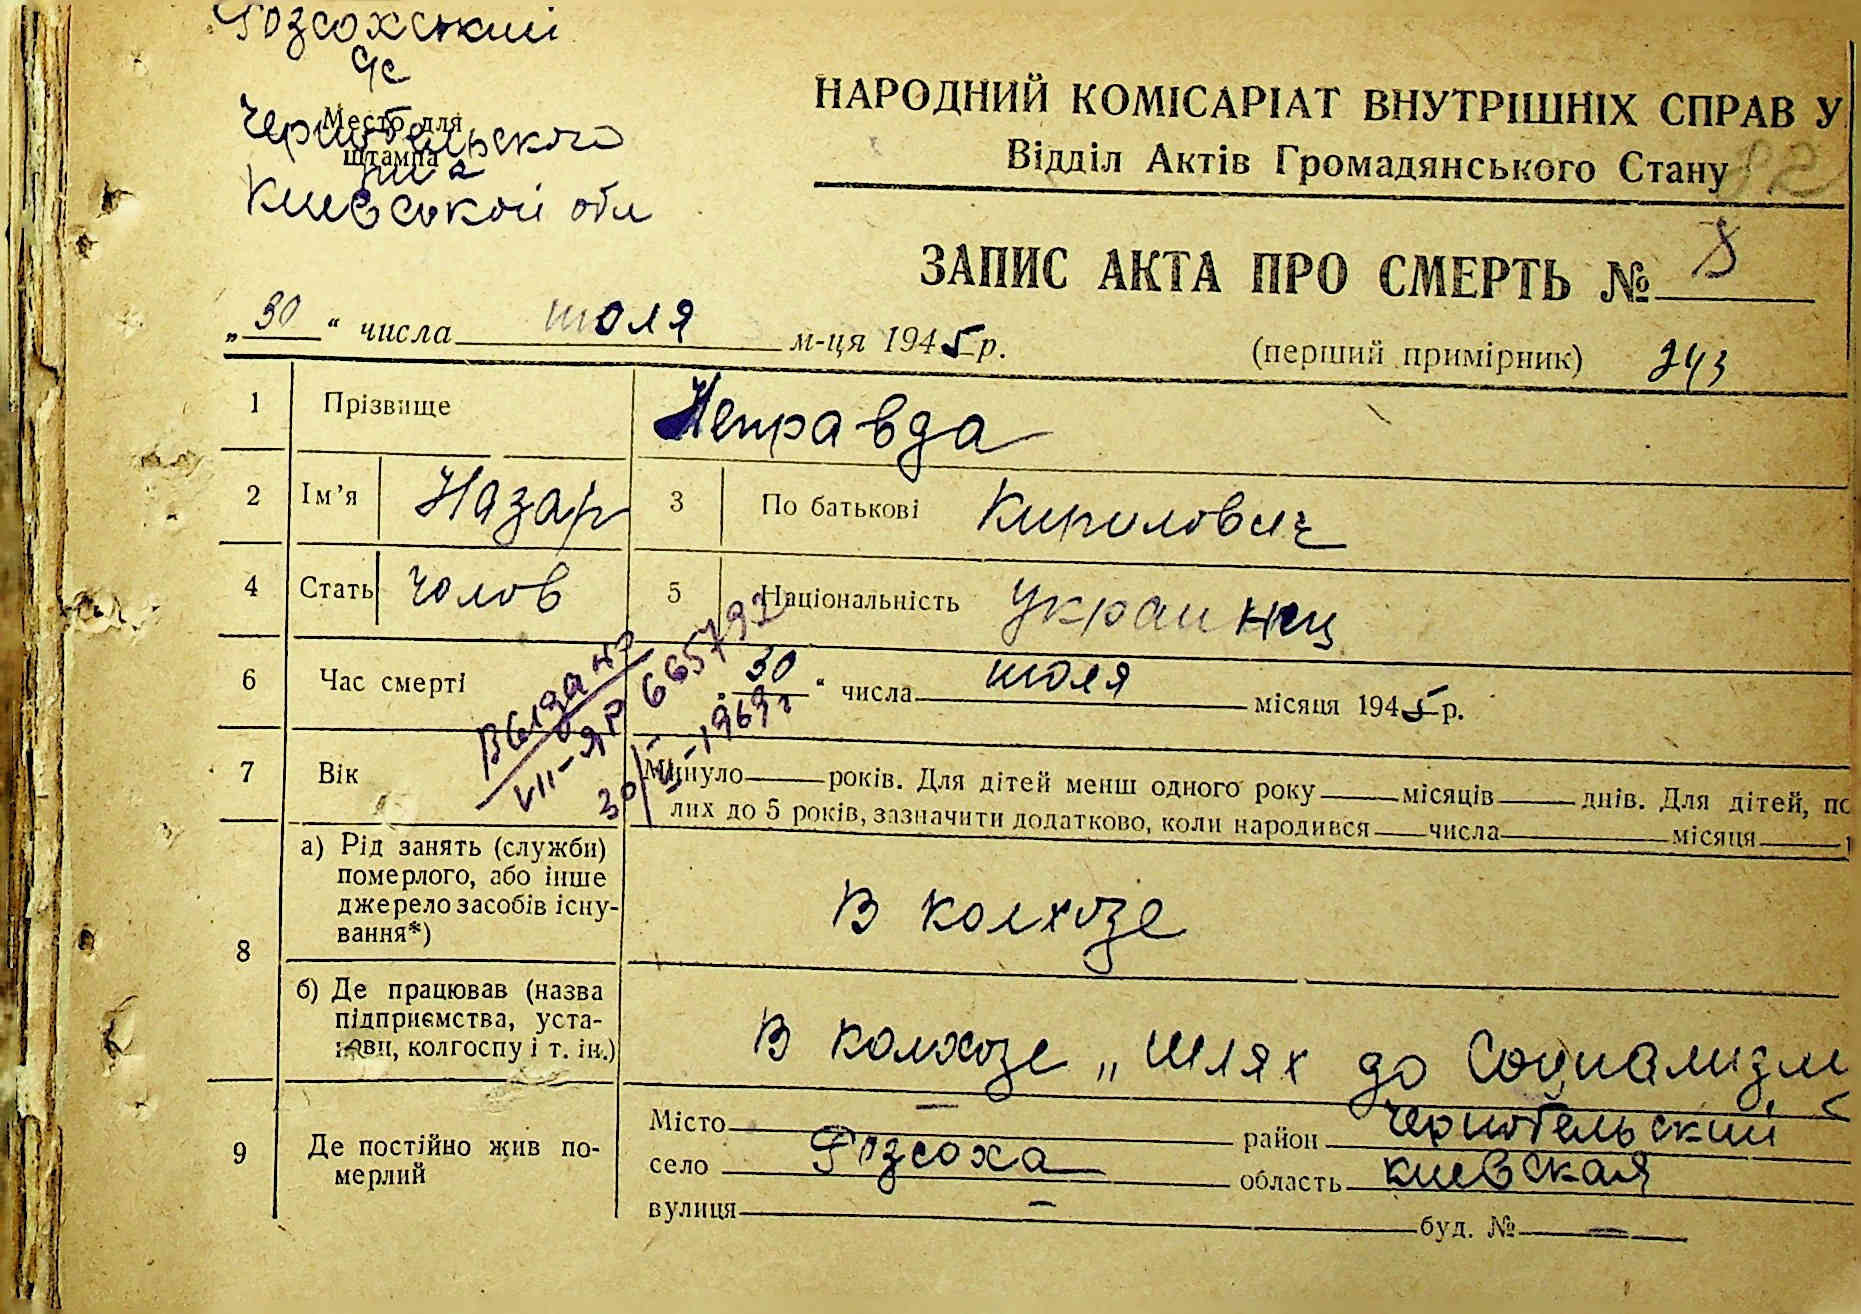 Розсохский
с/с
Место для
штампа
Чернобельского
р-на
Киевськой обл
НАРОДНИЙ КОМІСАРІАТ ВНУТРІШНІХ СПРАВ У
Відділ Актів Громадянського Стану
82
ЗАПИС АКТА ПРО СМЕРТЬ № 8
„30“ числа июля м-ця 1945 р. (перший примірник) 243
1 Прізвище Неправда
2 Ім’я Назар 3 По батькові Кирилович
4 Стать чолов 5 Національність украинец
6 Час смерті „30“ числа июля місяця 1945 р.
Выдано
VII-ЯР 665792
30/V-1969г
7 Вік Минуло років. Для дітей менш одного року місяців днів. Для дітей, по
лих до 5 років, зазначити додатково, коли народився числа місяця
8 а) Рід занять (служби)
померлого, або інше
джерело засобів існу-
вання*)
В колхозе
б) Де працював (назва
підприємства, уста-
нови, колгоспу і т. ін.)
В колхозе „Шлях до Социализм
9 Де постійно жив по-
мерлий
Місто — район Чернобельский
село Розсоха область киевская
вулиця — буд. № —